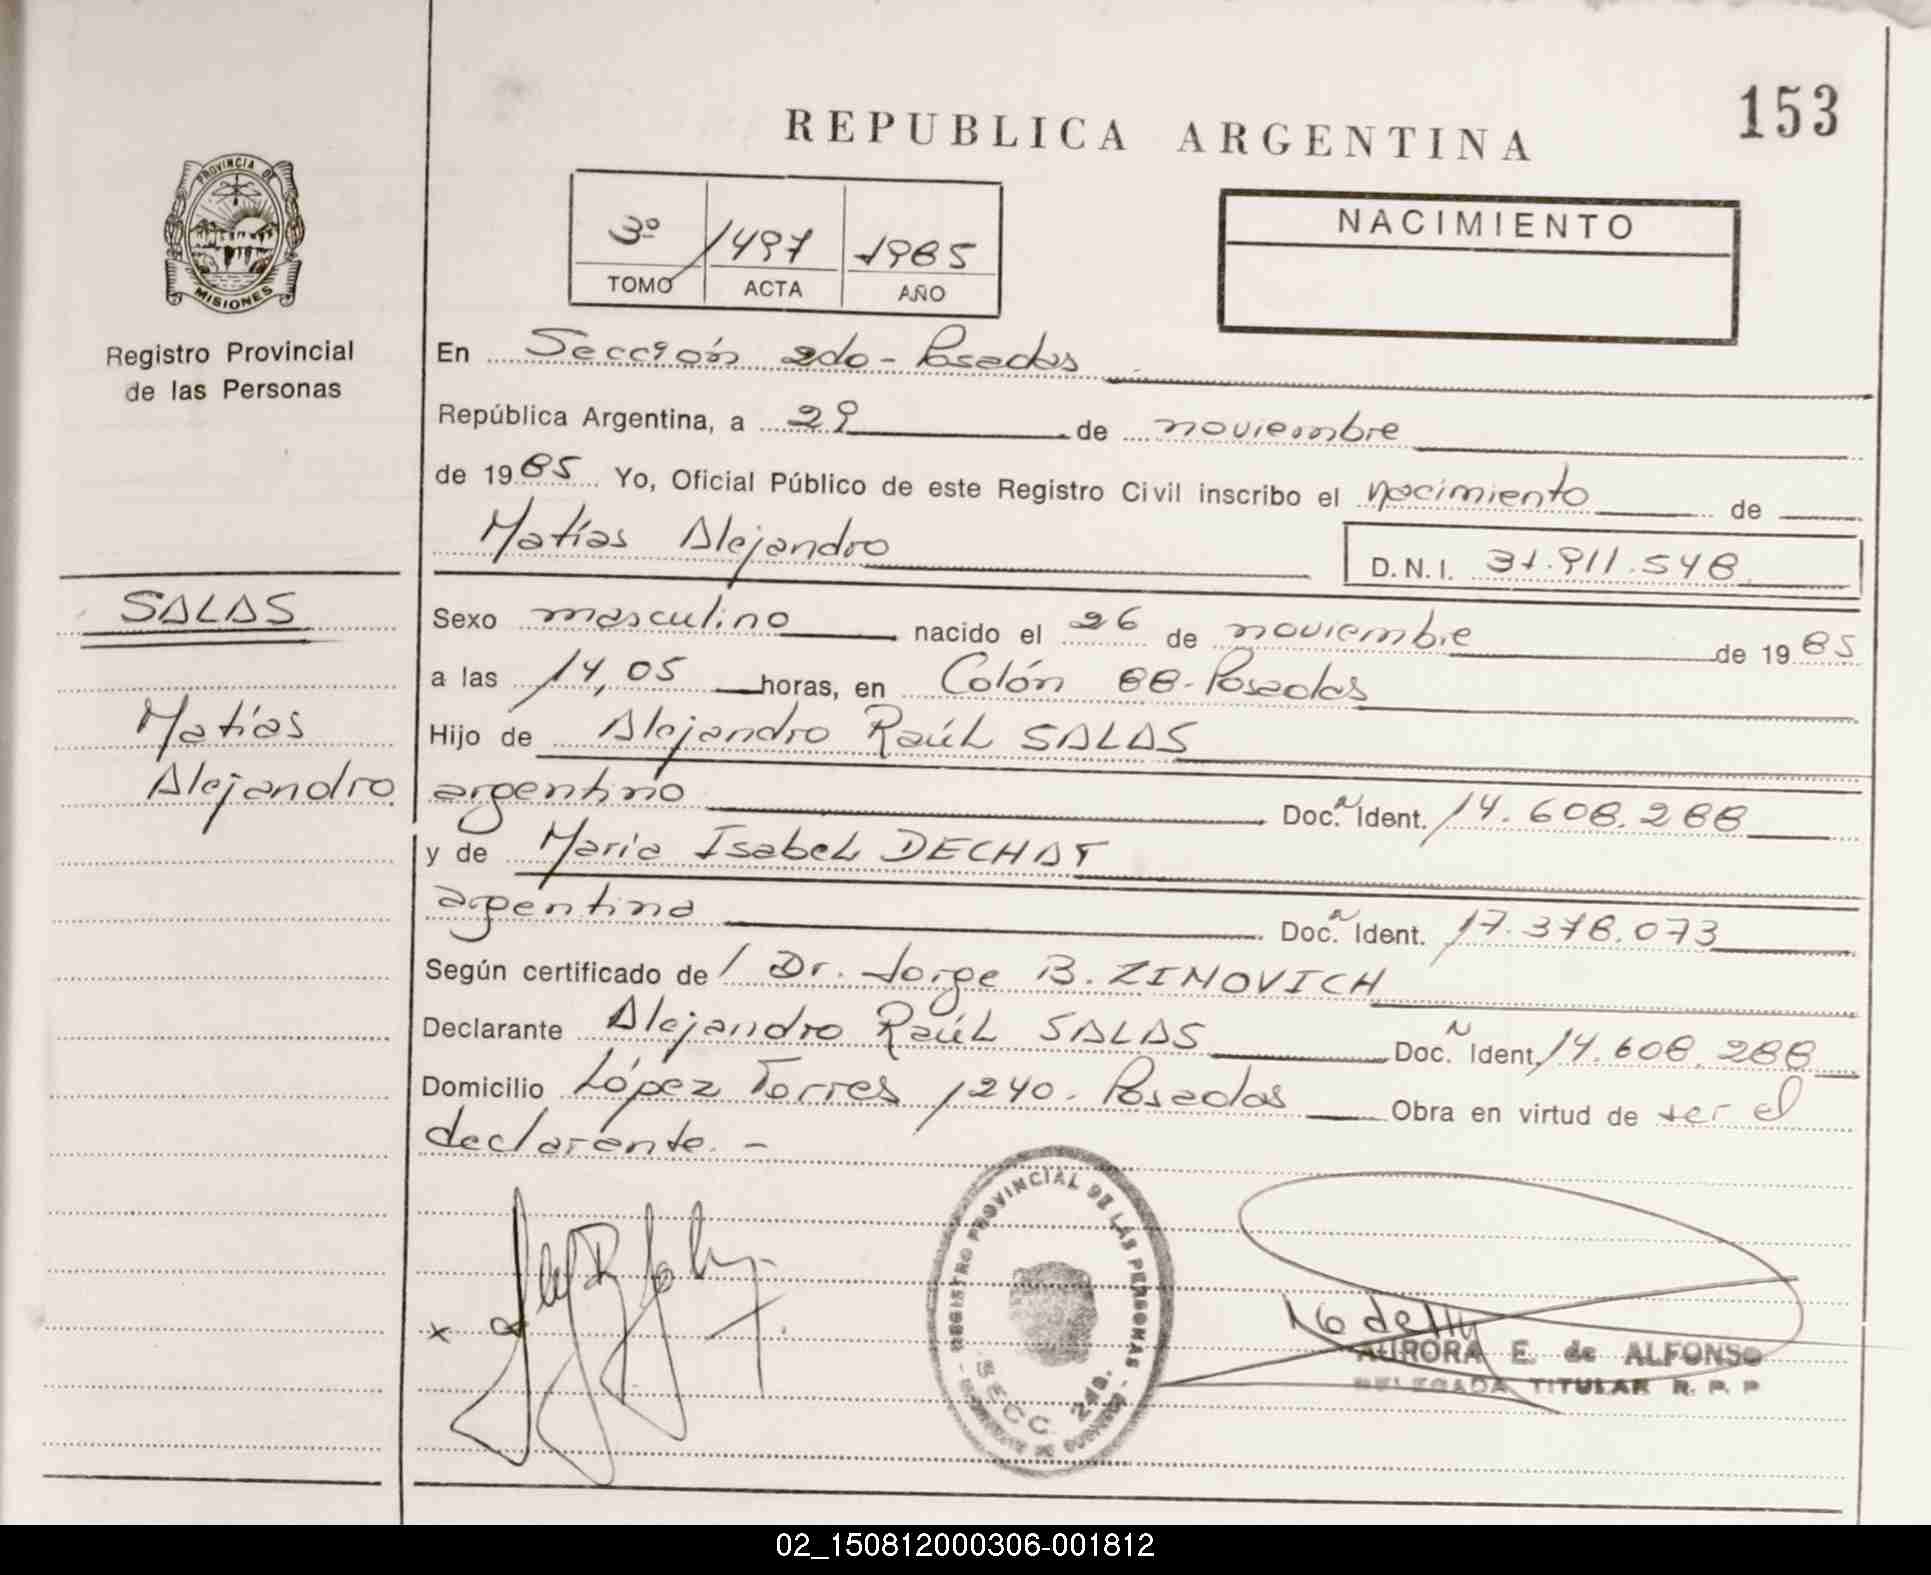 153
REPUBLICA ARGENTINA
PROVINCIA DE
MISIONES
Registro Provincial
de las Personas
3º 1497 1985
TOMO ACTA AÑO
NACIMIENTO
En Sección 2do - Posadas
República Argentina, a 29 de noviembre
de 1985 Yo, Oficial Público de este Registro Civil inscribo el nacimiento de
Matías Alejandro
D.N.I. 31.911.548
SALAS
Matías
Alejandro
Sexo masculino nacido el 26 de noviembre de 1985
a las 14,05 horas, en Colón 88 - Posadas
Hijo de Alejandro Raúl SALAS
argentino Doc. Ident. 14.608.288
y de María Isabel DECHAT
argentina Doc. Ident. 17.378.073
Según certificado de / Dr. Jorge B. ZIMOVICH
Declarante Alejandro Raúl SALAS Doc. Ident. 14.608.288
Domicilio López Torres 1240. Posadas Obra en virtud de ser el
declarante. -
REGISTRO PROVINCIAL DE LAS PERSONAS
SECC. 2da.
x
AURORA E. de ALFONSO
DELEGADA TITULAR R. P. P
02_150812000306-001812